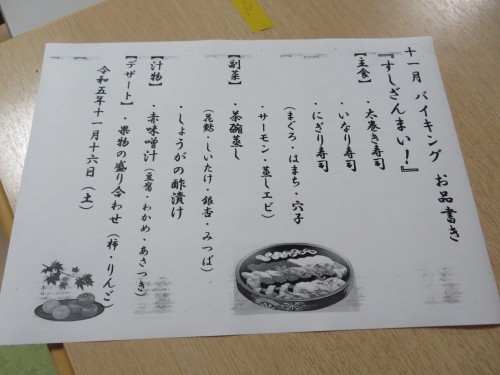 十一月 バイキング お品書き
『すしざんまい！』
【主食】
・太巻き寿司
・いなり寿司
・にぎり寿司
（まぐろ・はまち・穴子
・サーモン・蒸しエビ）
【副菜】
・茶碗蒸し
（花麩・しいたけ・銀杏・みつば）
・しょうがの酢漬け
【汁物】
・赤味噌汁（豆腐・わかめ・あさつき）
【デザート】
・果物の盛り合わせ（柿・りんご）
令和五年十一月十六日（土）